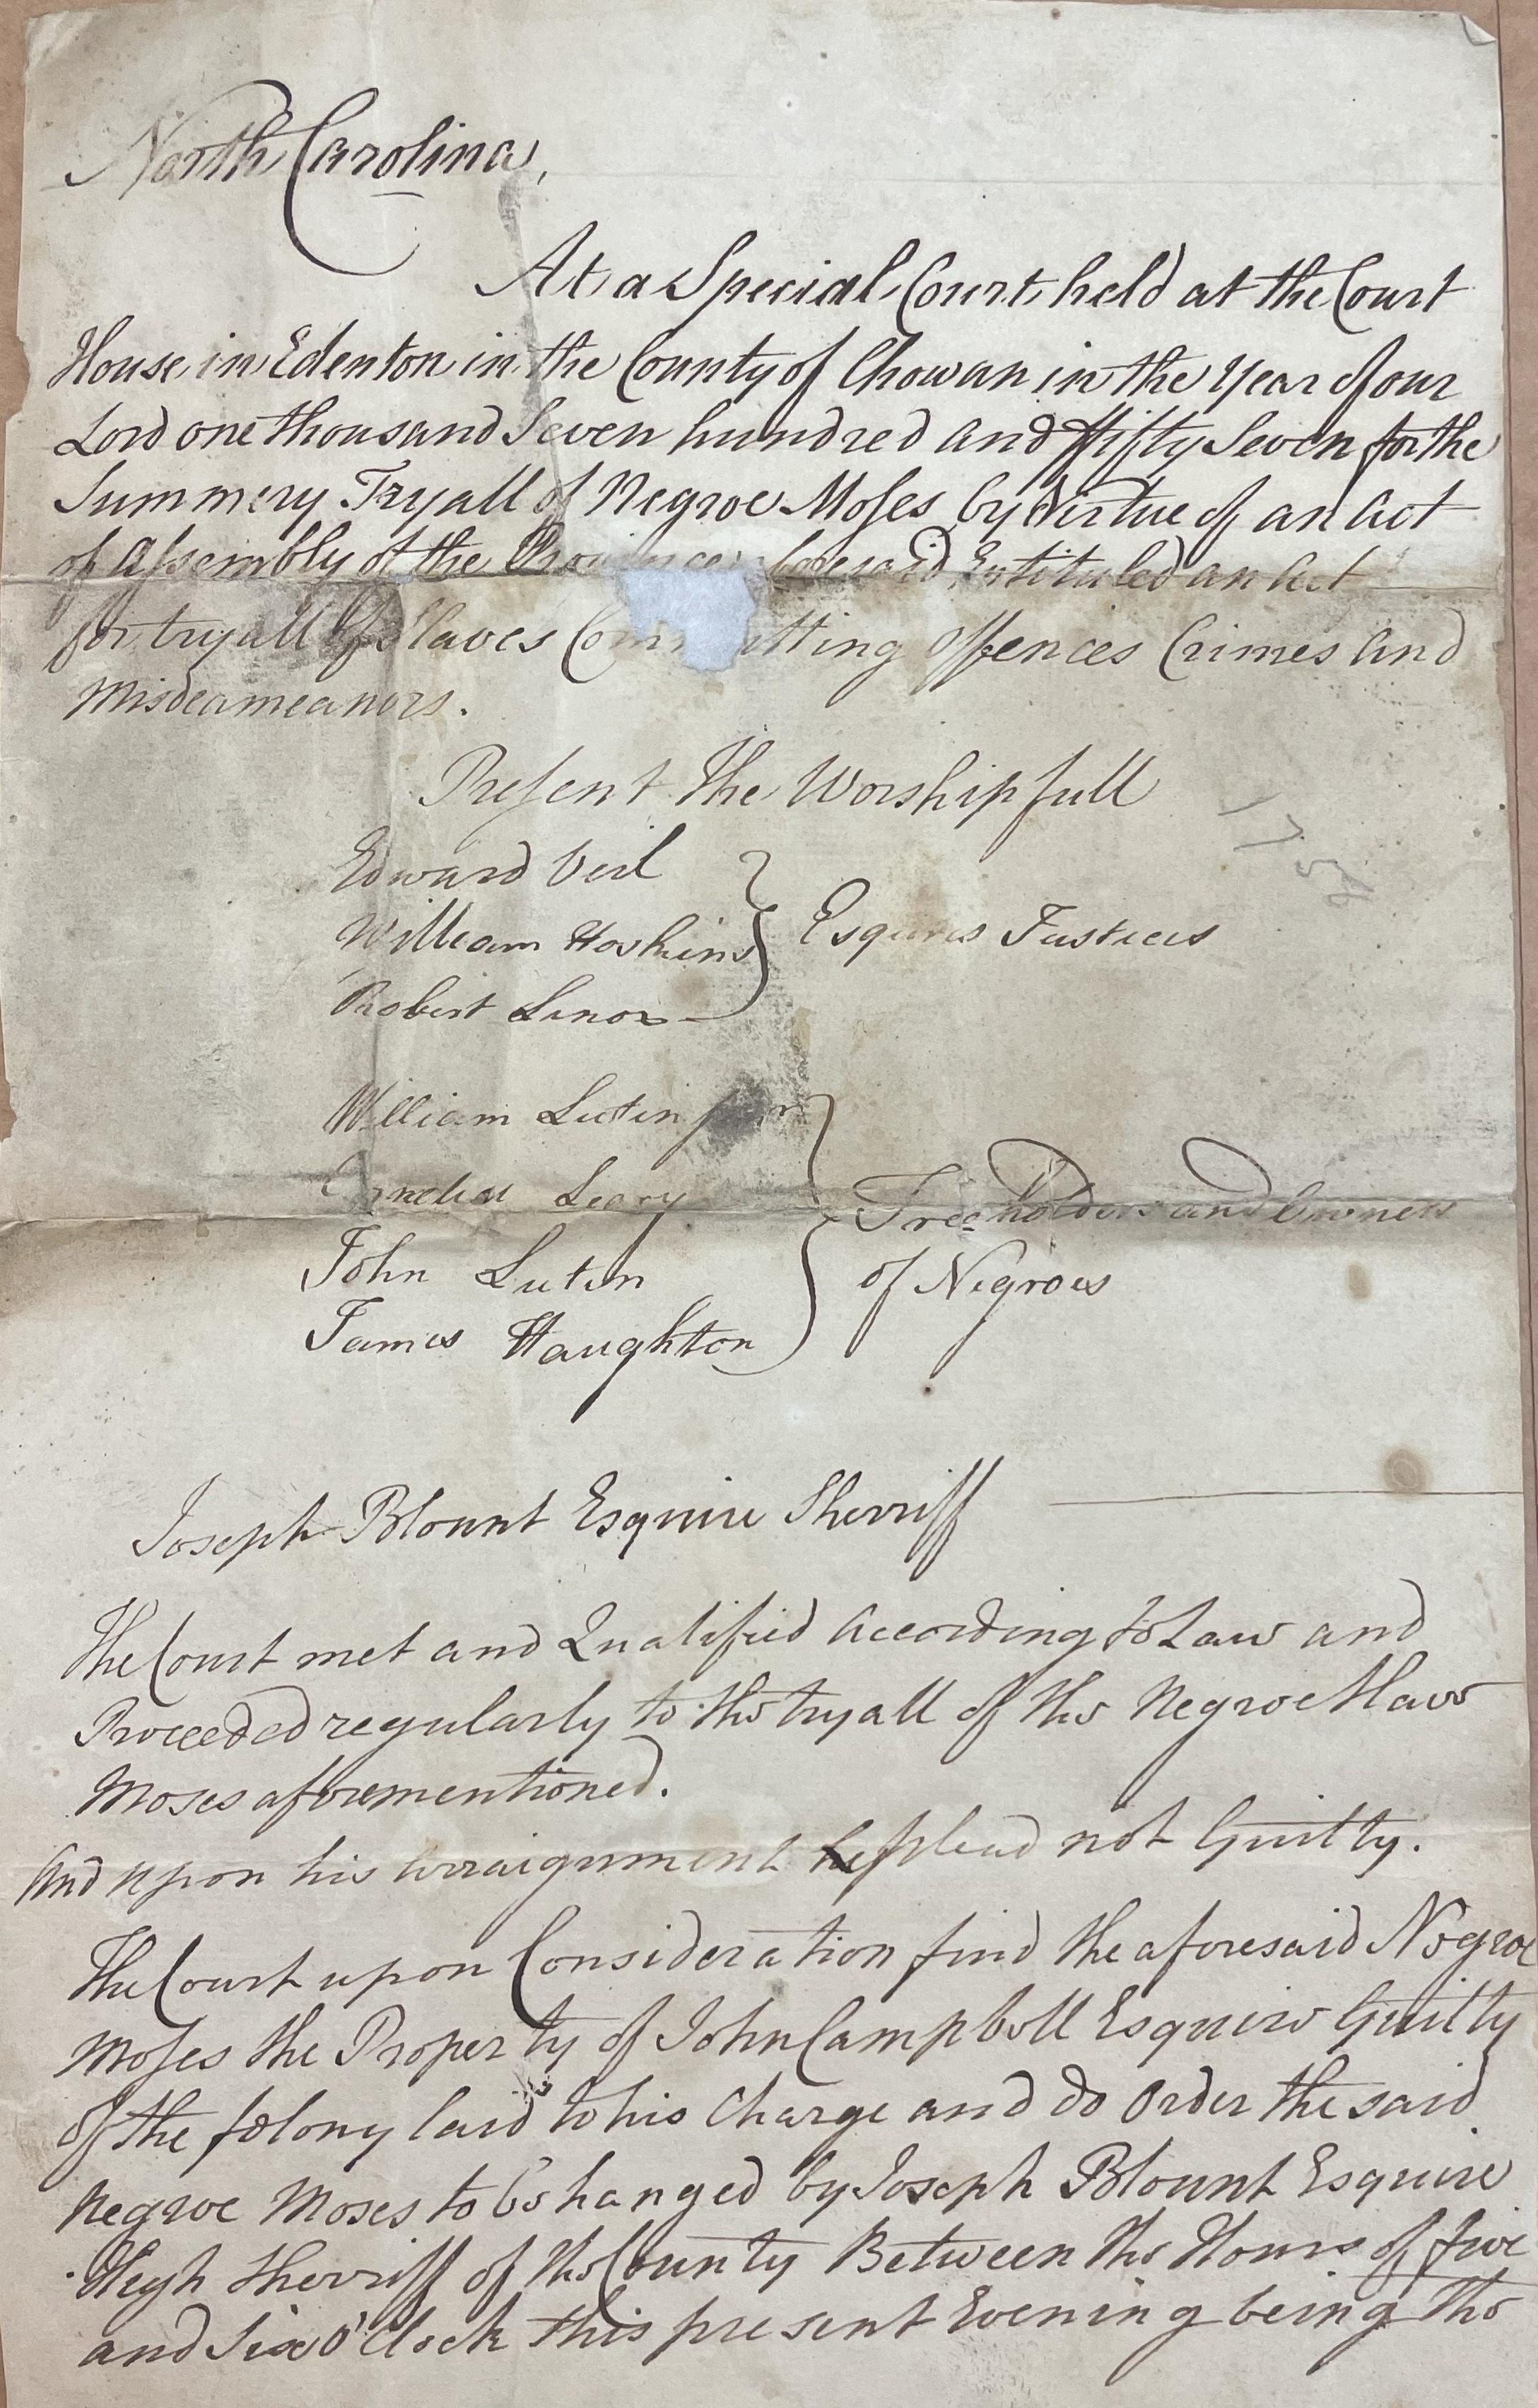 North Carolina,
At a Special Court held at the Court
House in Edenton in the County of Chowan in the Year of our
Lord one thousand Seven hundred and ffifty Seven for the
Summery Tryall of Negroe Moses by Virtue of an Act
of Assembly of the Province aforesaid Entituled an Act
for tryall of Slaves Committing Offences Crimes and
Misdeameanors.
Present The Worshipfull
Edward Veil
William Hoskins Esquires Justices
Robert Lenox
1757
William Luten
Cornelius Leary Freeholders and Owners
John Luten of Negroes
James Haughton
Joseph Blount Esquire Sherriff
The Court met and Qualified According to Law and
Proceeded regularly to the tryall of the Negroe Slave
Moses aforementioned.
And upon his arraignment he plead not Guilty.
The Court upon Consideration find the aforesaid Negroe
Moses the Property of John Campbell Esquire Guilty
of the felony laid to his Charge and do Order the said
Negroe Moses to be hanged by Joseph Blount Esquire
High Sherriff of the County Between the Hours of five
and Six O'Clock this present Evening being the